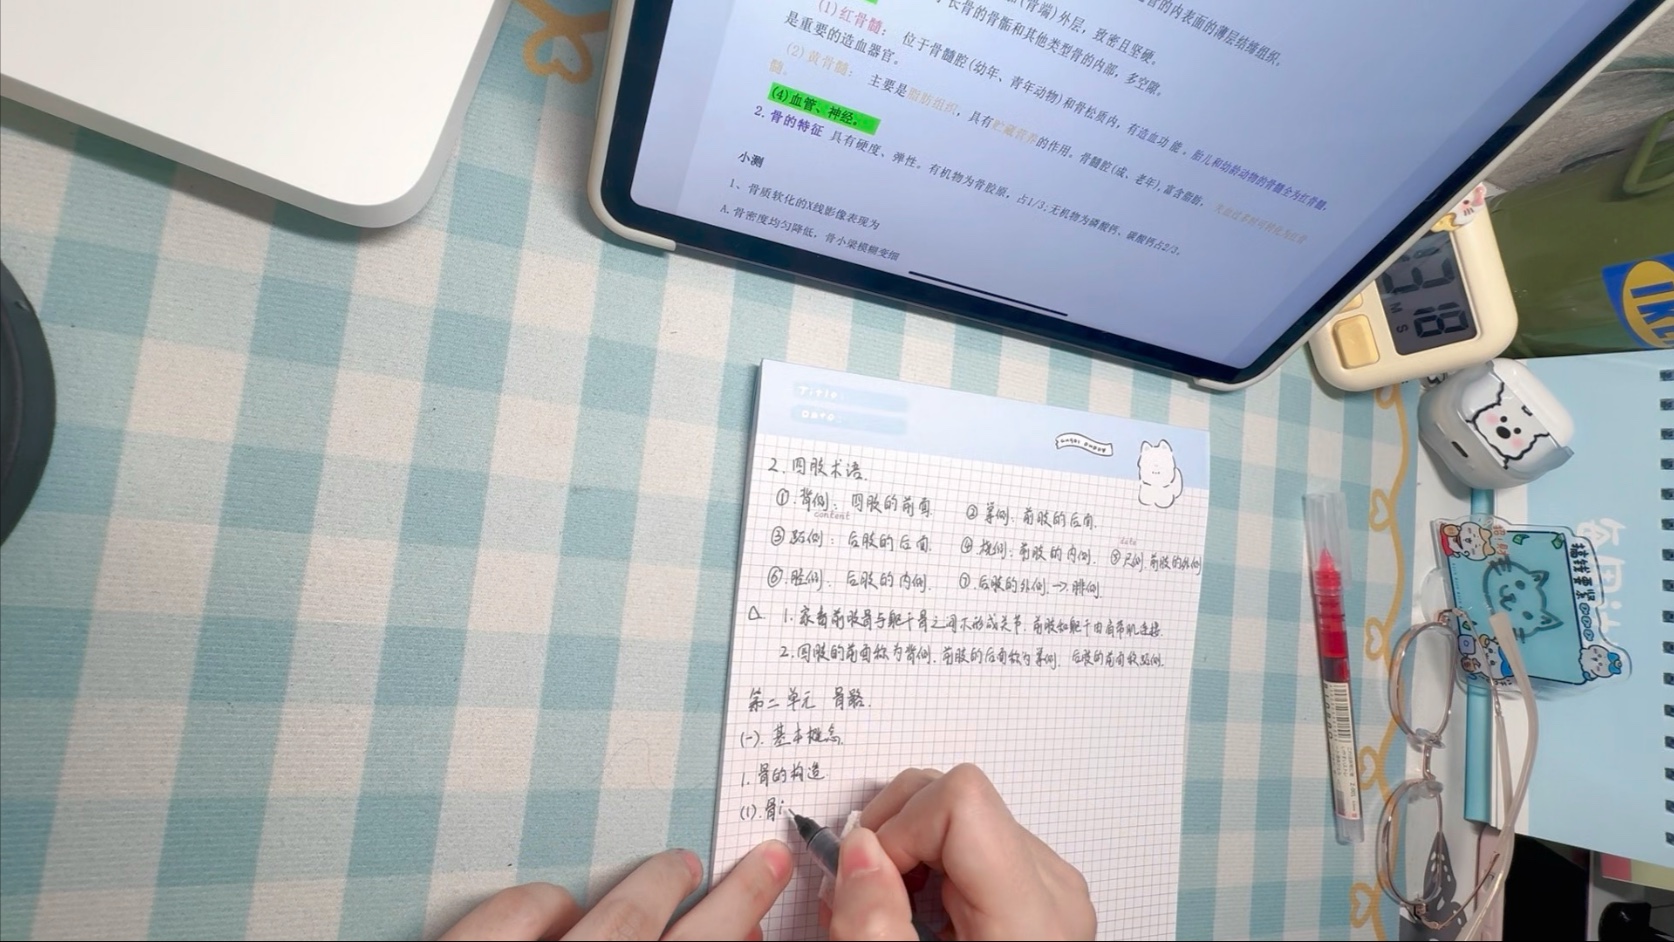 官的内表面的薄层结缔组织。
(骨端)外层，致密且坚硬。
长骨的骨骺和其他类型骨的内部，多空隙。
(1)红骨髓： 位于骨髓腔(幼年、青年动物)和骨松质内，有造血功能。胎儿和幼龄动物的骨髓全为红骨髓，
是重要的造血器官。
(2)黄骨髓： 主要是脂肪组织，具有贮藏营养的作用。骨髓腔(成、老年)，富含脂肪，
髓。
(4)血管、神经。
2.骨的特征 具有硬度、弹性。有机物为骨胶原，占1/3；无机物为磷酸钙、碳酸钙占2/3。
小测
1、骨质软化的X线影像表现为
A.骨密度均匀降低，骨小梁模糊变细
Title
Date
2.四肢术语.
①.背侧：四肢的前面. ②掌侧：前肢的后面.
content
date
③跖侧：后肢的后面. ④桡侧：前肢的内侧. ⑤尺侧.前肢的外侧
⑥.胫侧. 后肢的内侧. ⑦.后肢的外侧.→腓侧.
△ 1.家畜前肢骨与躯干骨之间不形成关节.前肢和躯干由肩带肌连接.
2.四肢的前面称为背侧.前肢的后面称为掌侧. 后肢的前面称跖侧.
第二单元 骨骼.
(一).基本概念.
1.骨的构造.
(1).骨
18
M S